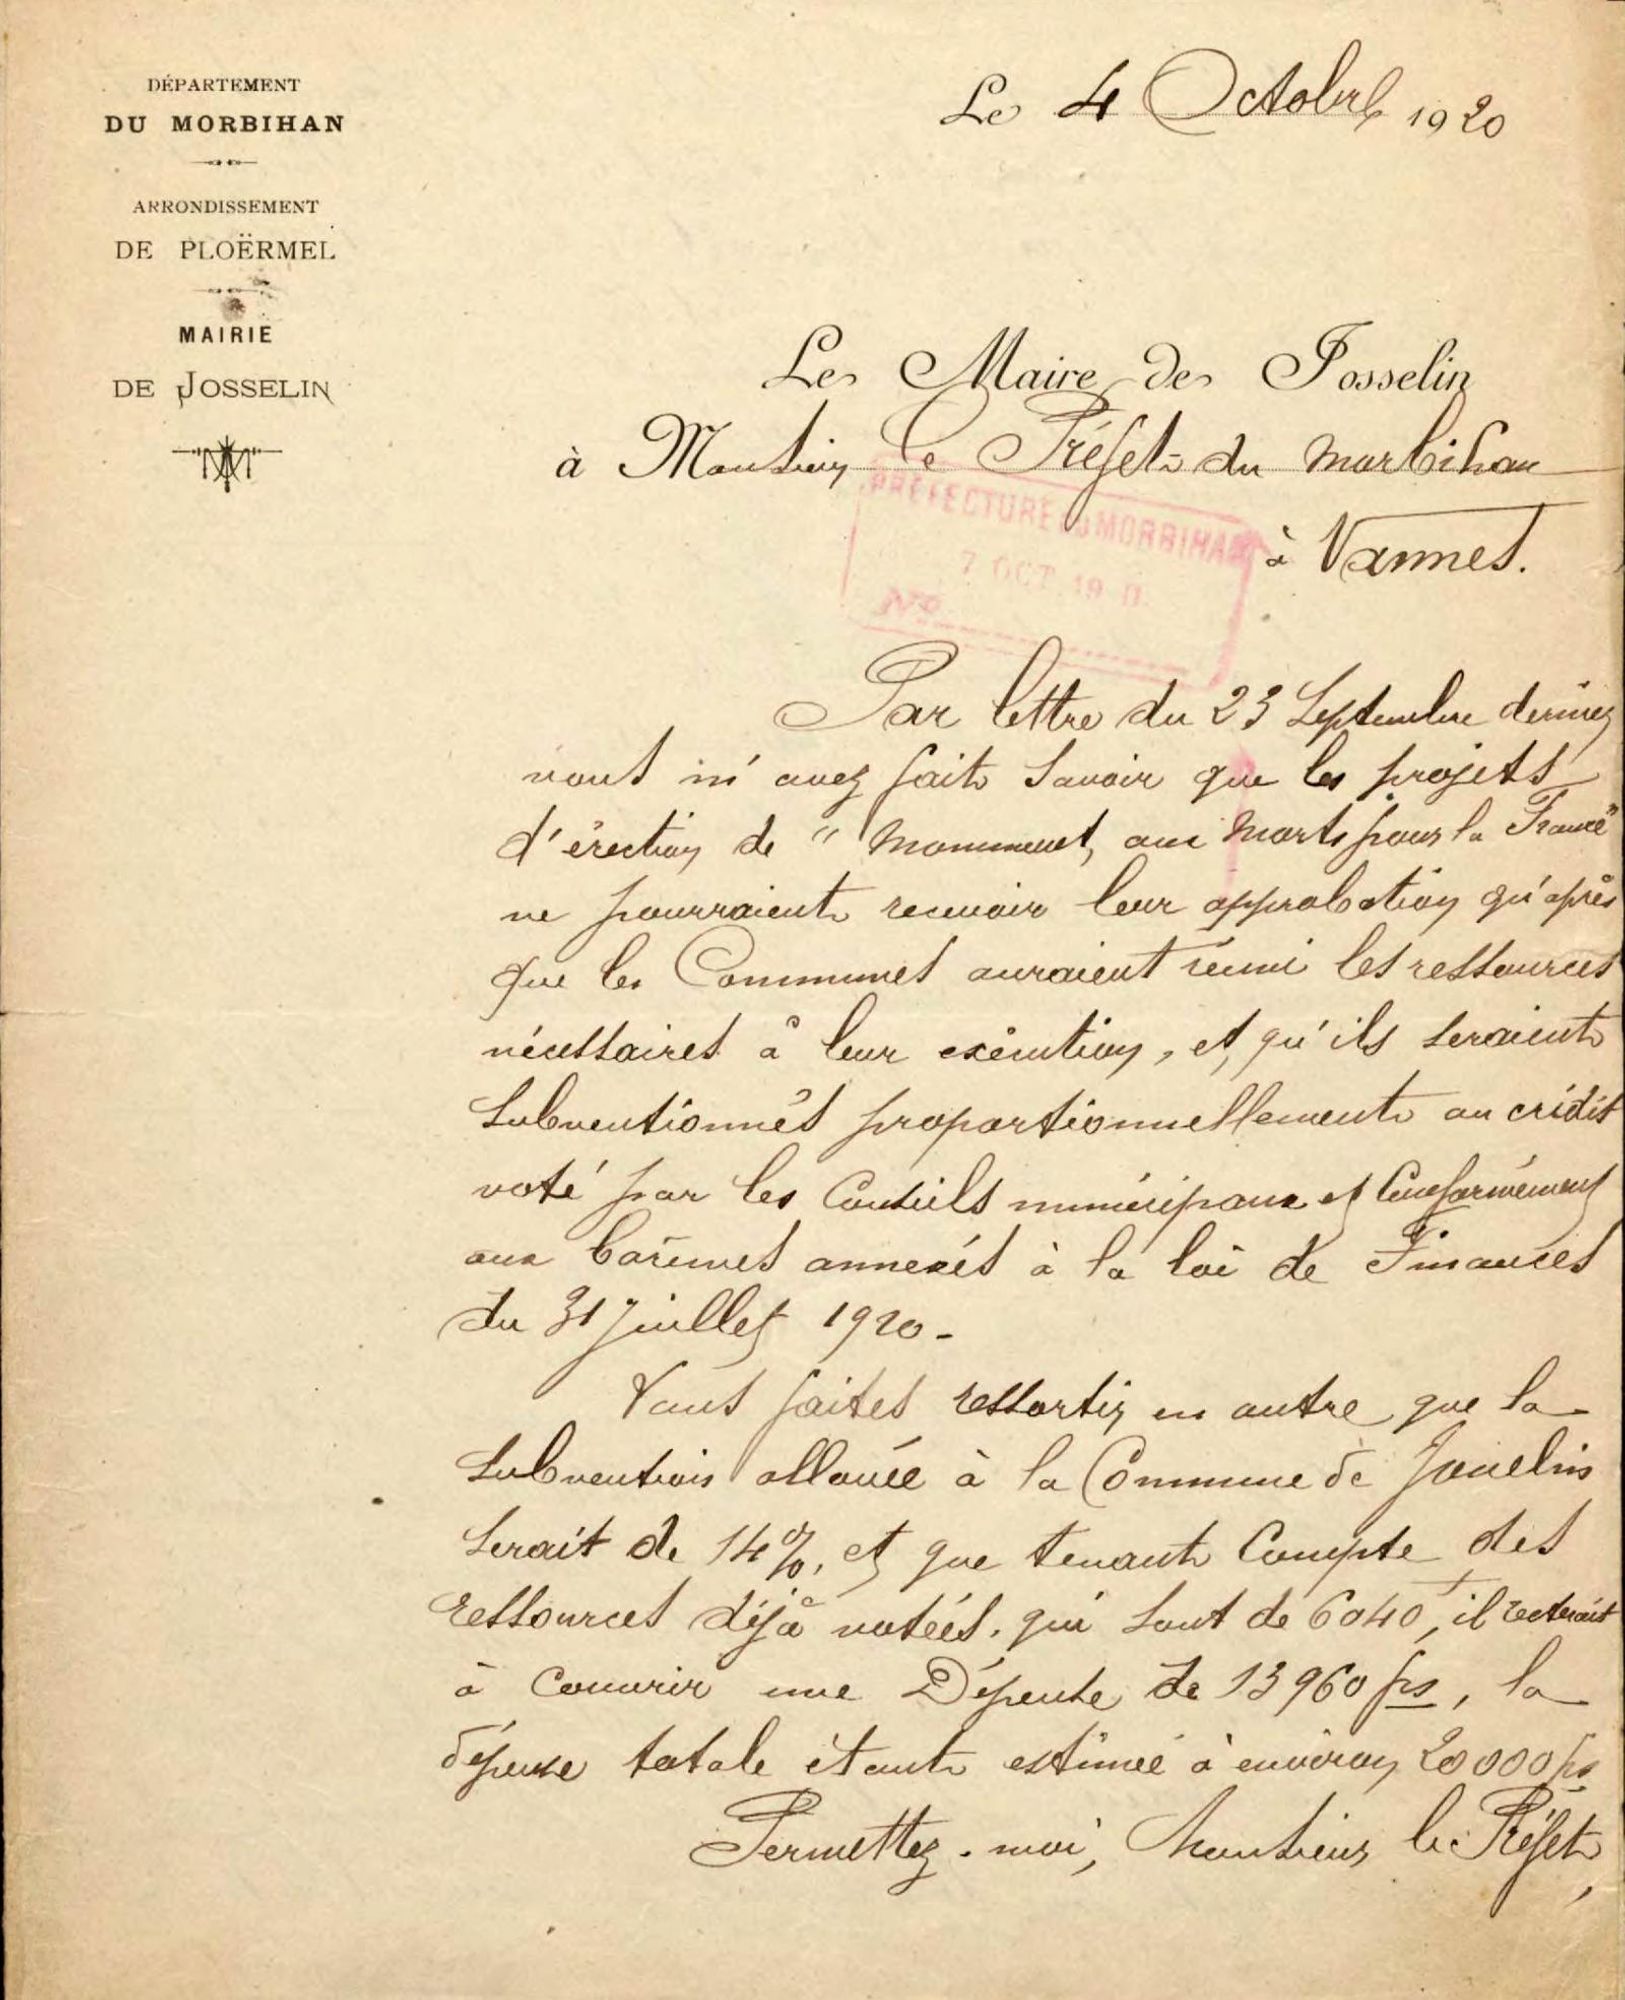 DÉPARTEMENT
DU MORBIHAN
ARRONDISSEMENT
DE PLOËRMEL
MAIRIE
DE JOSSELIN
Le 4 Octobre 1920
Le Maire de Josselin
à Monsieur le Préfet du Morbihan
à Vannes.
PRÉFECTURE DU MORBIHAN
7 OCT 19 0
No
Par lettre du 23 Septembre dernier
vous m'avez fait savoir que les projets
d'érection de "Monument, aux Morts pour la France"
ne pourraient recevoir leur approbation qu'après
que les Communes auraient réuni les ressources
nécessaires à leur exécution, et, qu'ils seraient
subventionnés proportionnellement au crédit
voté par les Conseils municipaux et Conformément
aux barèmes annexés à la loi de Finances
du 31 Juillet 1920 -
Vous faites ressortir en outre que la
subvention allouée à la Commune de Josselin
serait de 14%, et que tenant Compte des
ressources déjà votées, qui sont de 6040 f, il resterait
à couvrir une Dépense de 13960 frs, la
dépense totale étant estimée à environ 20000 frs
Permettez-moi, Monsieur le Préfet,